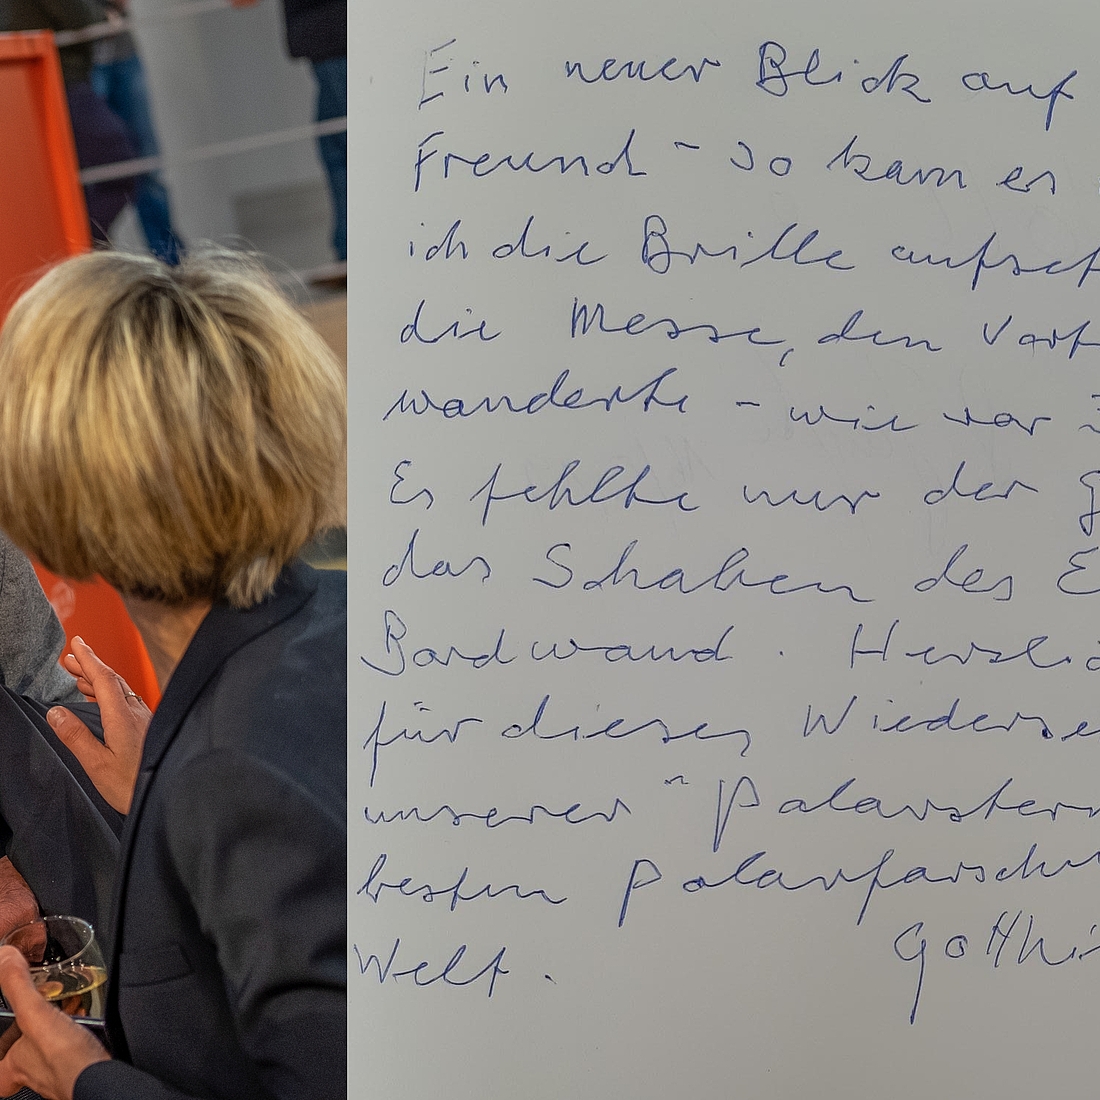 Ein neuer Blick auf
Freund - so kam es
ich die Brille aufset
die Messe, den Vort
wanderte - wie vor 3
Es fehlte nur der G
das Schaben des E
Bordwand. Herzlic
für dieses Wiederse
unserer "Polarstern
besten Polarforschu
Welt.
Gotthi